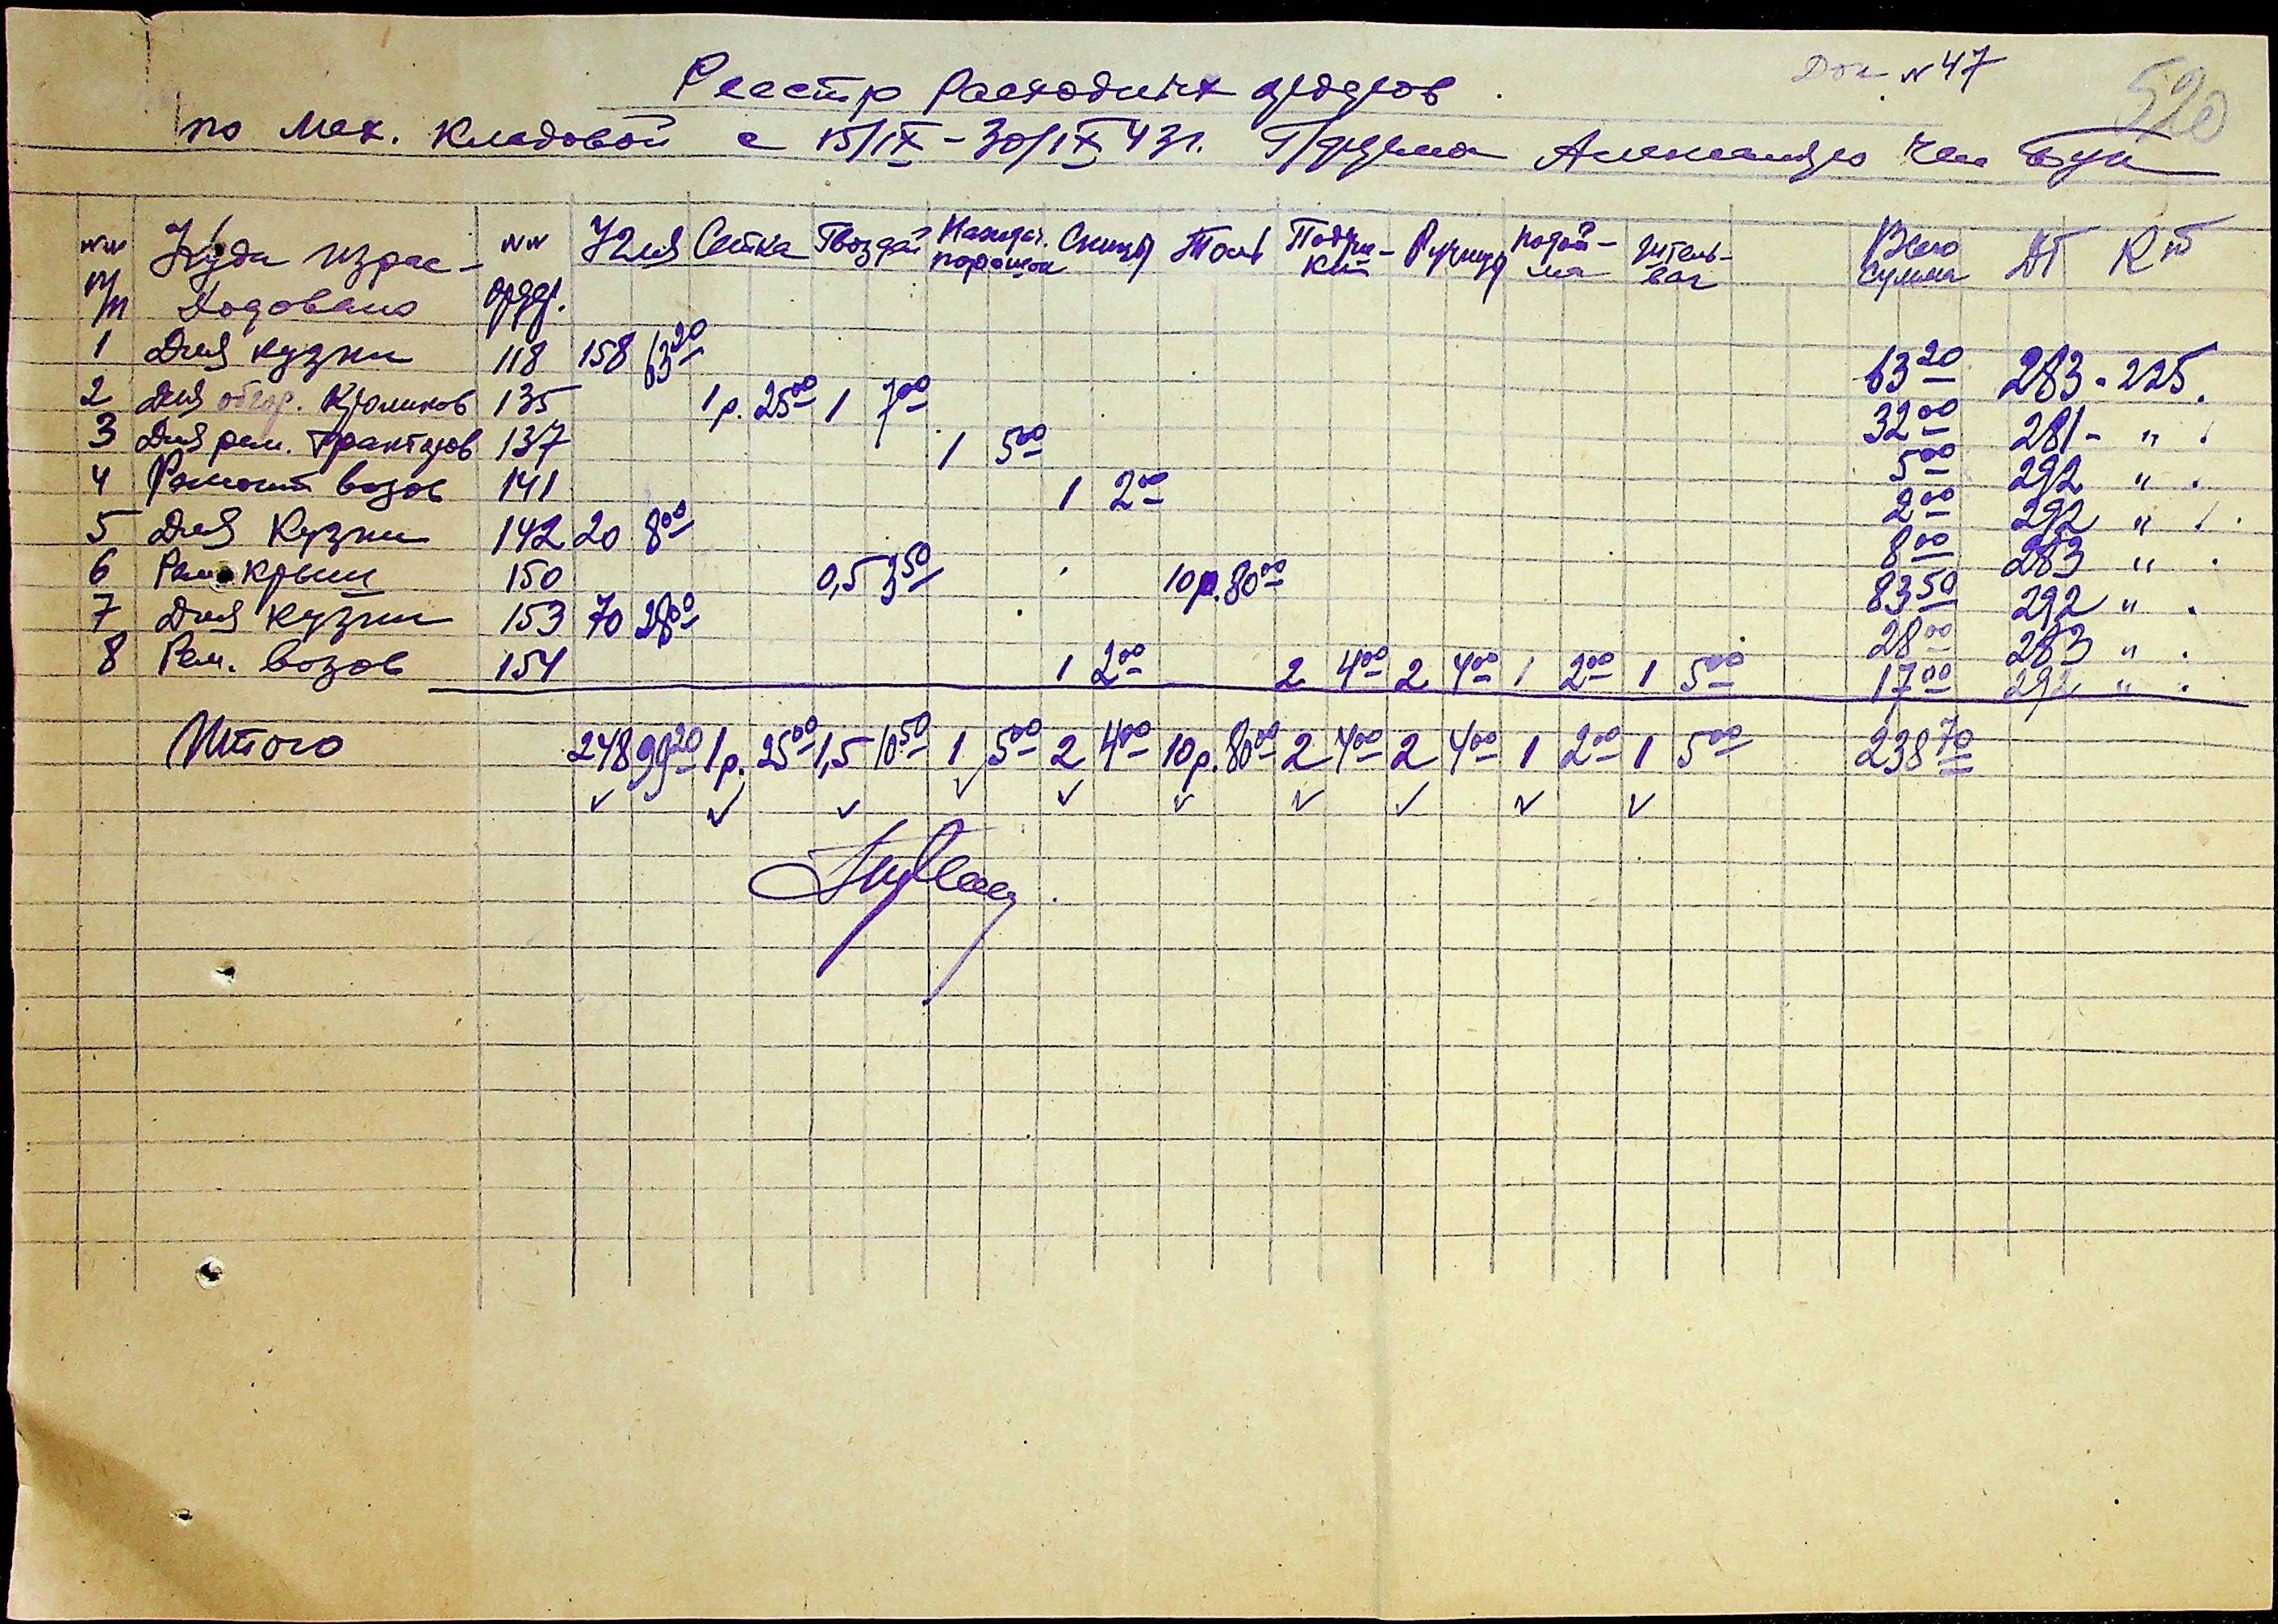 Док №47
520
Реестр Расходных ордеров
по Мех. Кладовой с 15/IX-30/IX 43г.
№№ п/п Куда израсходовано №№ ордер. Угля Сетка Гвоздей порошок Толь Всего сумма ДТ КТ
1 Для кузни 118 158 63 20 63 20 283 - 225.
2 Для Кроликов 135 1р. 25 00 1 7 00 32 00 281 - " .
3 Для рем. тракторов 137 1 5 00 5 00 292 " .
4 Ремонт возов 141 1 2 00 2 00 292 " .
5 Для Кузни 142 20 8 00 8 00 283 " .
6 Рем. крыш 150 0,5 3 50 10р. 80 00 83 50 292 " .
7 Для кузни 153 70 28 00 28 00 283 " .
8 Рем. возов 154 1 2 00 2 4 00 2 4 00 1 2 00 1 5 00 17 00 292 " .
Итого 248 99 20 1р. 25 00 1,5 10 50 1 5 00 2 4 00 10р. 80 00 2 4 00 2 4 00 1 2 00 1 5 00 238 70